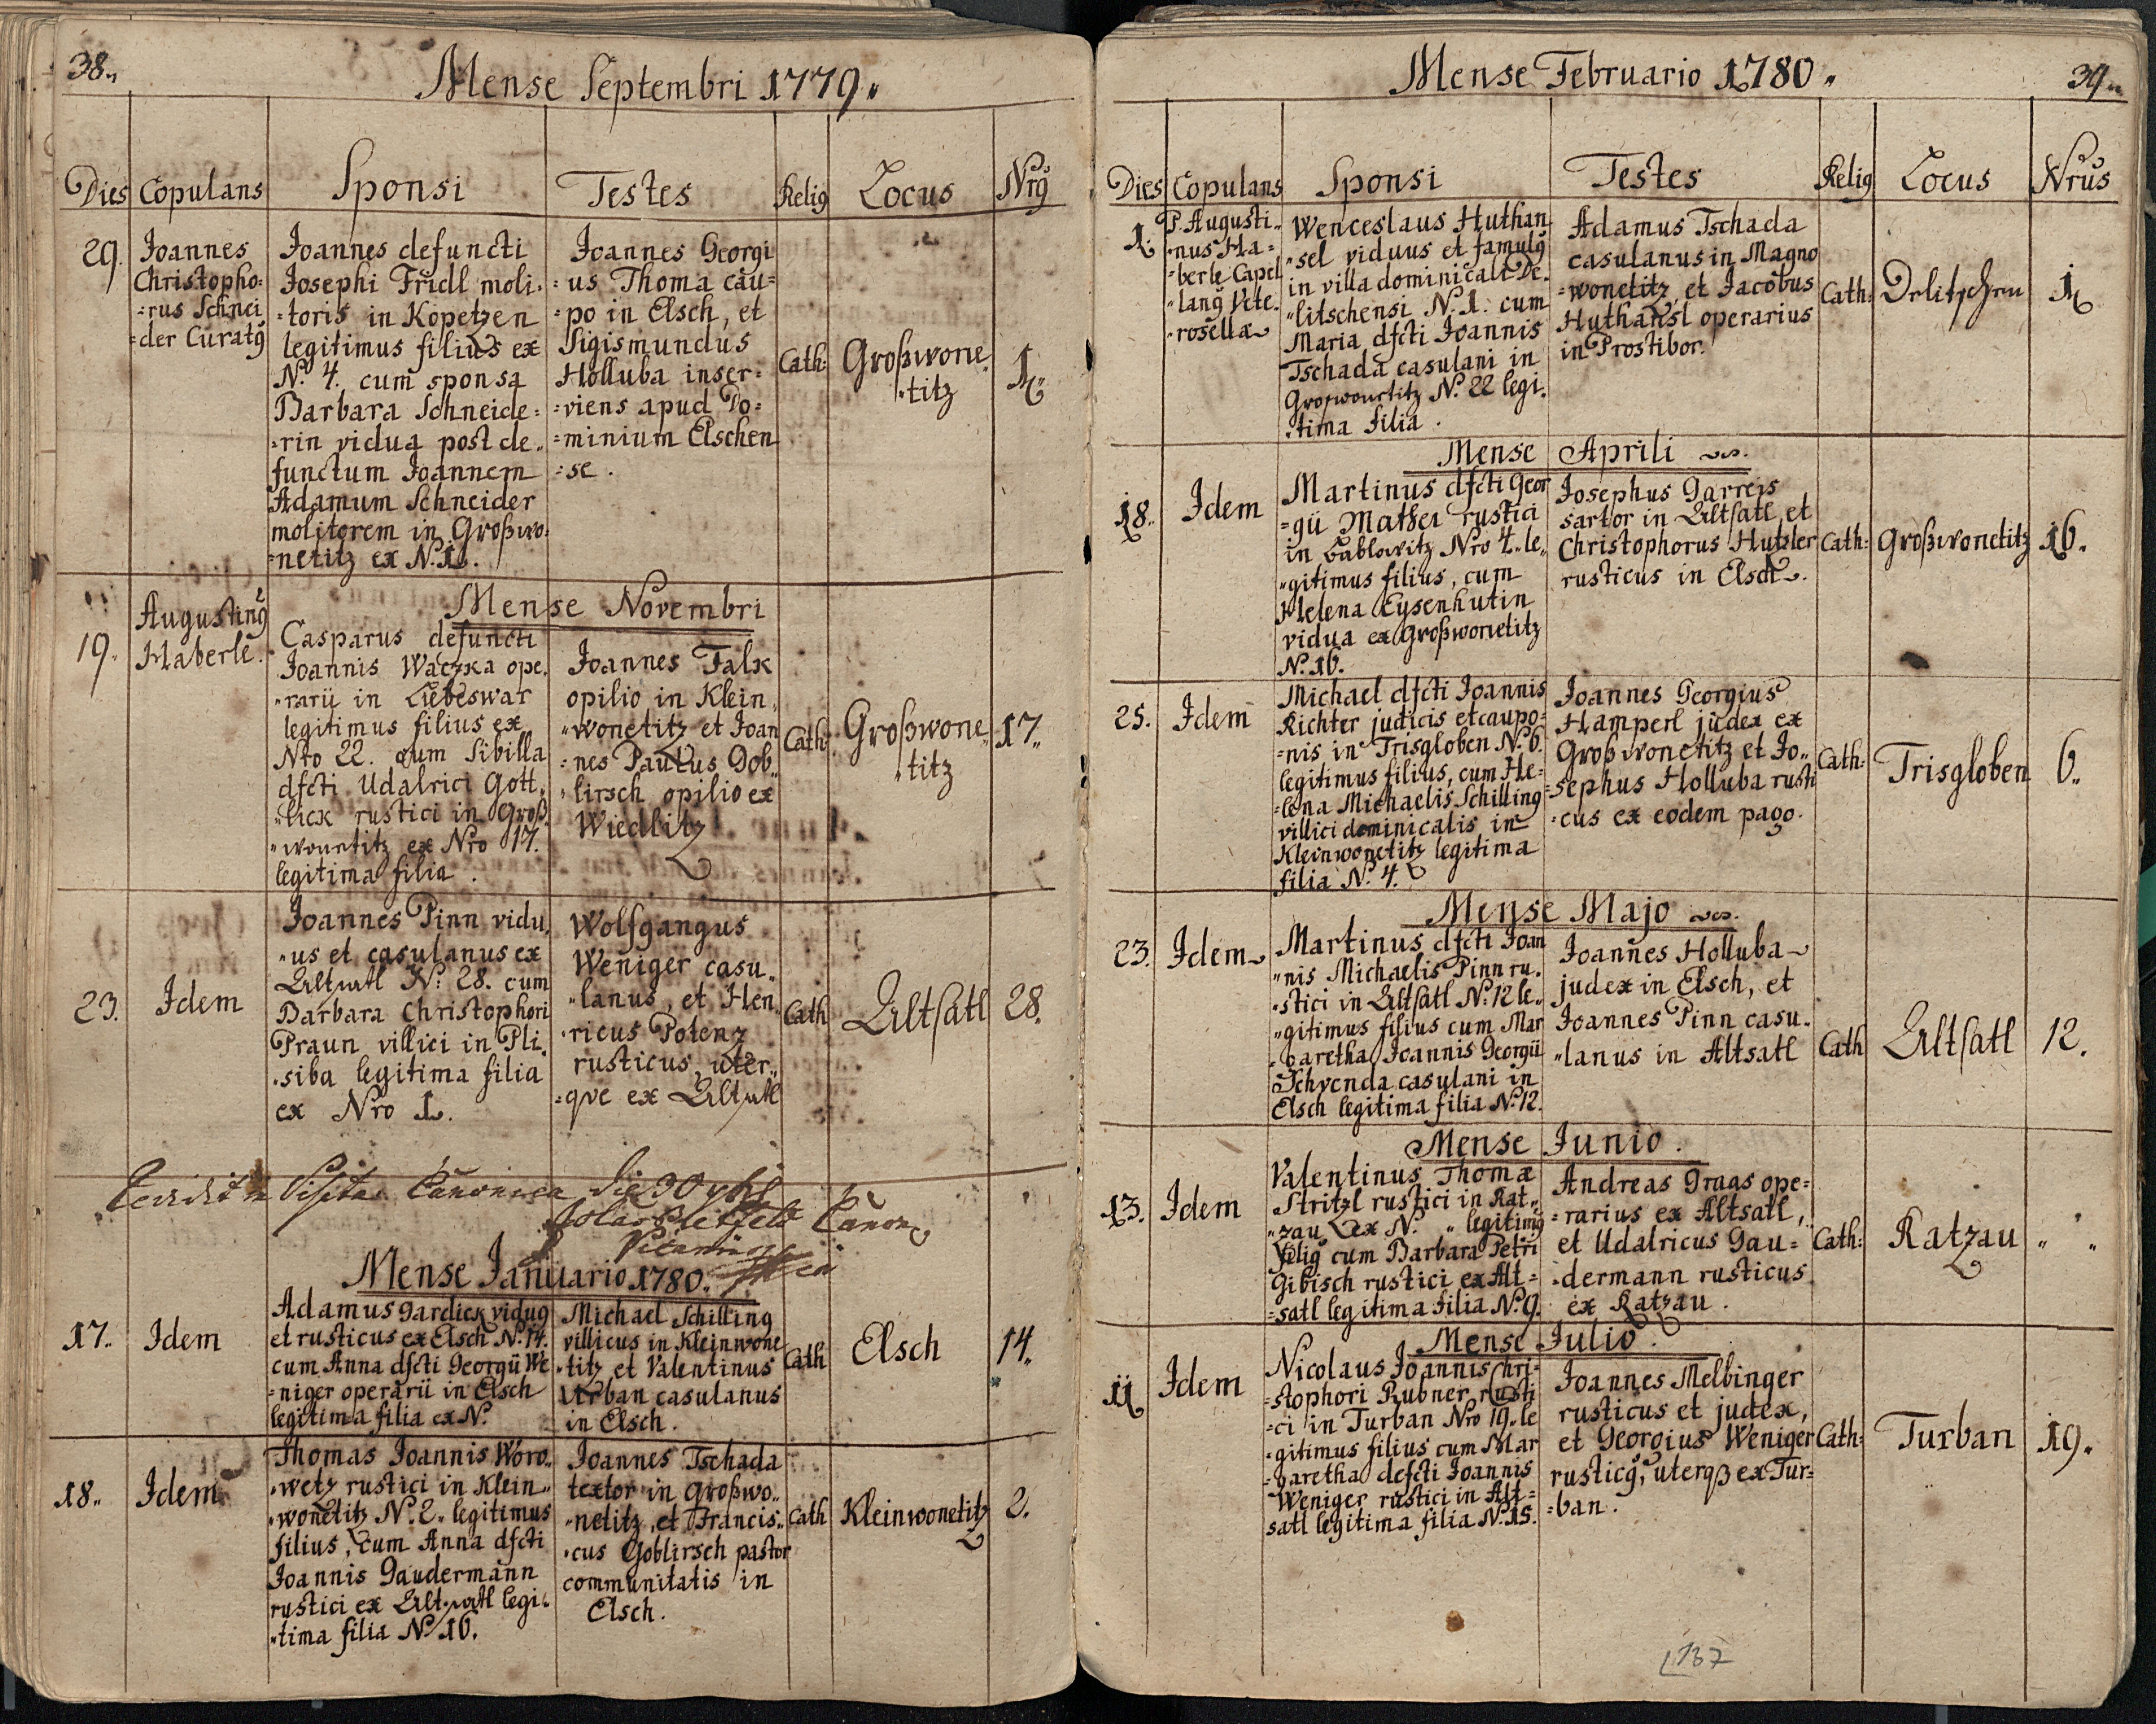 38.
Mense Septembri 1779.
Dies Copulans Sponsi Testes Relig Locus Nrg
29.
Joannes
Christopho=
=rus Schnei
=der Curatg
Joannes defuncti
Josephi Fridl moli=
=toris in Kopetzen
legitimus filius ex
N. 4. cum sponsa
Barbara Schneide=
=rin vidua post de„
functum Joannem
Adamum Schneider
molitorem in Großwo=
=netitz ex N. 1.
Joannes Georgi
=us Thoma cau=
=po in Elsch, et
Sigismundus
Holluba inser=
=viens apud Do=
=minium Elschen
=se.
Cath:
Großwone
„titz
1.
Mense Novembri
19.
Augusting
Haberle.
Casparus defuncti
Joannis Waczka ope„
„rarii in Liebeswar
legitimus filius ex
Nro 22. cum Sibilla
dfcti Udalrici Gott„
„lick rustici in Groß„
„wonetitz ex Nro 17.
legitima filia.
Joannes Falk
opilio in Klein„
„wonetitz et Joan
=nes Paulus Gob„
„lirsch opilio ex
Wiedlitz
Cath:
Großwone„
„titz
17.
23.
Idem
Joannes Pinn vidu„
„us et casulanus ex
Altsatl N: 28. cum
Barbara Christophori
Praun villici in Pli„
„siba legitima filia
ex Nro 1.
Wolfgangus
Weniger casu„
„lanus, et Hen„
„ricus Potenz
rusticus, uter„
=qve ex Altsatl
Cath
Altsatl
28.
Visita Canonica die 30
Canon
Mense Januario 1780.
17.
Idem
Adamus Gardick vidug
et rusticus ex Elsch N. 14.
cum Anna dfcti Georgii We
=niger operarii in Elsch
legitima filia ex N.
Michael Schilling
villicus in Kleinwone
„titz et Valentinus
Urban casulanus
in Elsch.
Cath
Elsch
14.
18.
Idem
Thomas Joannis Woro„
„wetz rustici in Klein„
„wonetitz N. 2. legitimus
filius, cum Anna dfcti
Joannis Gaudermann
rustici ex Altsatl legi„
„tima filia N. 16.
Joannes Tschada
textor in Großwo„
„netitz, et Francis„
„cus Goblirsch pastor
communitatis in
Elsch.
Cath
Kleinwonetitz
2.
Mense Februario 1780.
39.
Dies Copulans Sponsi Testes Relig Locus Nrus
1.
P. Augusti„
„nus Ha=
=berle Capel
„lang Pete„
„rosellæ
Wenceslaus Huthan
„sel viduus et famulg
in villa dominicali De„
„litschensi N. 1. cum
Maria dfcti Joannis
Tschada casulani in
Großwonetitz N. 22 legi„
„tima filia.
Adamus Tschada
casulanus in Magno
=wonetitz, et Jacobus
Huthansl operarius
in Prostibor.
Cath:
Delitschen
1.
Mense Aprili
18.
Idem
Martinus dfcti Geor
=gii Mather rustici
in Gablowitz Nro 4. le„
„gitimus filius, cum
Helena Eysenhutin
vidua ex Großwonetitz
N. 16.
Josephus Garreis
sartor in Altsatl, et
Christophorus Hutzler
rusticus in Elsch.
Cath:
Großwonetitz
16.
25.
Idem
Michael dfcti Joannis
Richter judicis et caupo=
=nis in Trisgloben N. 6.
legitimus filius, cum He=
=lena Michaelis Schilling
villici dominicalis in
Kleinwonetitz legitima
filia N. 4.
Joannes Georgius
Hamperl judex ex
Großwonetitz et Jo„
=sephus Holluba rusti
=cus ex eodem pago.
Cath:
Trisgloben
6.
Mense Majo
23.
Idem
Martinus dfcti Joan
„nis Michaelis Pinn ru„
„stici in Altsatl N. 12 le„
„gitimus filius cum Mar
„garetha Joannis Georgii
Schvenda casulani in
Elsch legitima filia N. 12.
Joannes Holluba
judex in Elsch, et
Joannes Pinn casu„
„lanus in Altsatl
Cath
Altsatl
12.
Mense Junio.
13.
Idem
Valentinus Thomæ
Stritzl rustici in Kat„
„zau ex N. „ legitimg
filig cum Barbara Petri
Gibisch rustici ex Alt=
=satl legitima filia N. 9.
Andreas Graas ope=
=rarius ex Altsatl,
et Udalricus Gau=
=dermann rusticus
ex Katzau.
Cath:
Katzau
„ „
Mense Julio.
11
Idem
Nicolaus Joannis Chri=
=stophori Rubner rusti
=ci in Turban Nro 19. le
„gitimus filius cum Mar
=garetha defcti Joannis
Weniger rustici in Alt=
satl legitima filia N. 15.
Joannes Melbinger
rusticus et judex,
et Georgius Weniger
rusticg, uterqß ex Tur=
=ban.
Cath:
Turban
19.
137